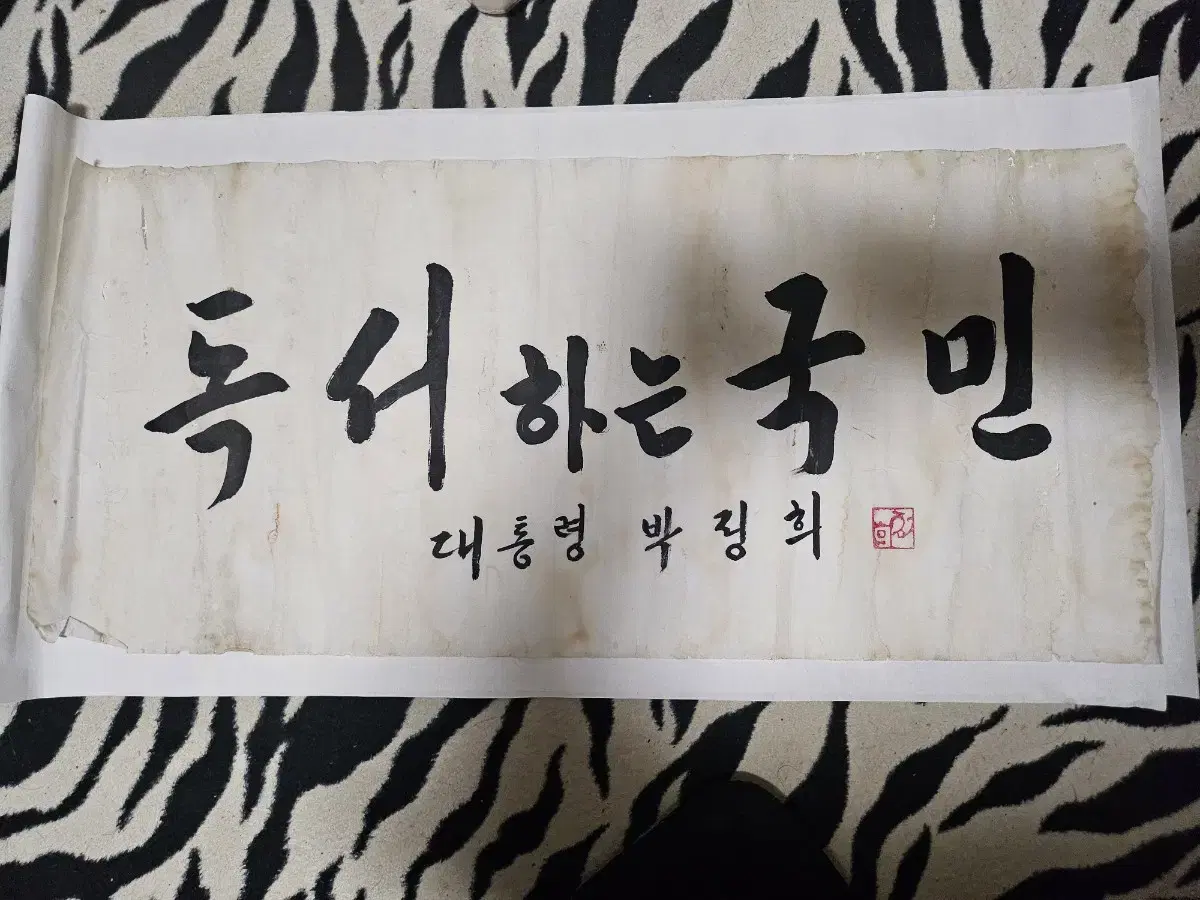 독서하는국민
대통령 박정희